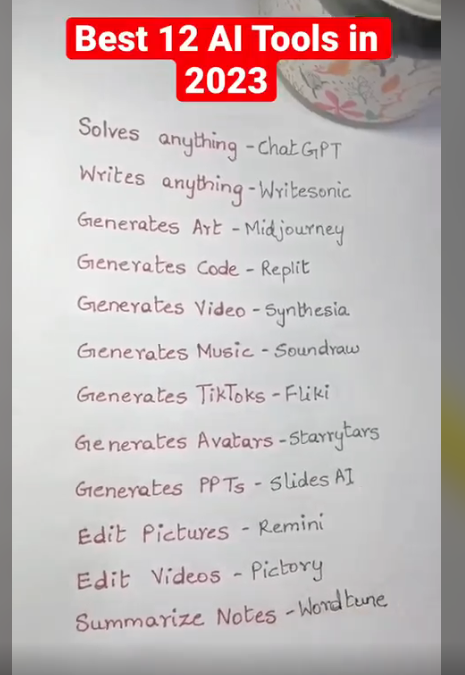 Best 12 AI Tools in
2023
Solves anything - ChatGPT
Writes anything - Writesonic
Generates Art - Midjourney
Generates Code - Replit
Generates Video - Synthesia
Generates Music - Soundraw
Generates TikToks - Fliki
Generates Avatars - Starrytars
Generates PPTs - Slides AI
Edit Pictures - Remini
Edit Videos - Pictory
Summarize Notes - Wordtune